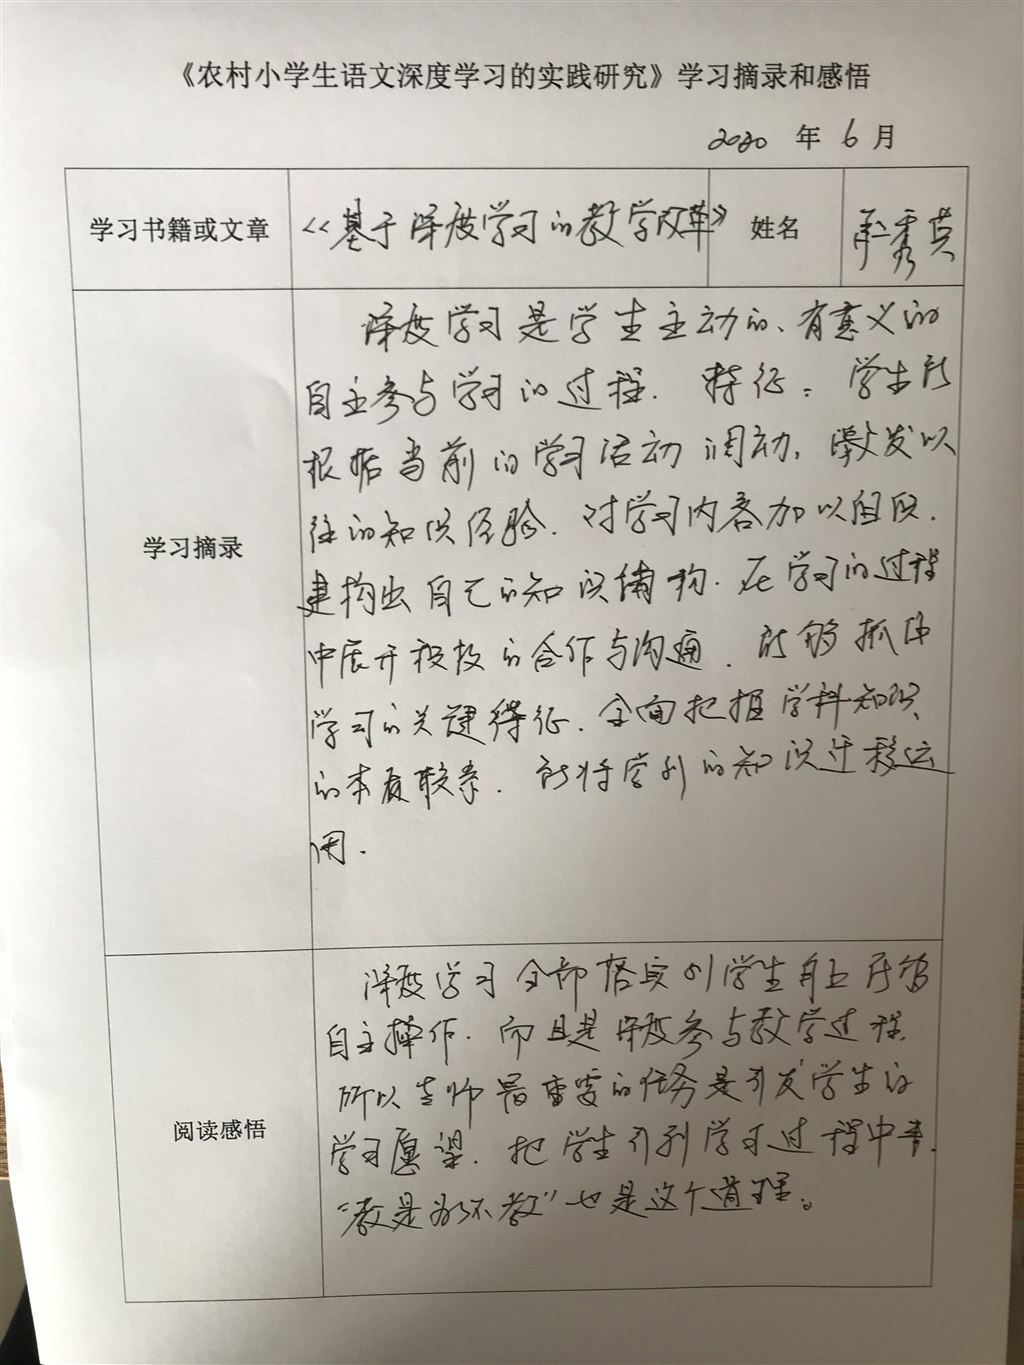 《农村小学生语文深度学习的实践研究》学习摘录和感悟
2020 年 6 月
学习书籍或文章 《基于深度学习的教学改革》 姓名 秀英
学习摘录
深度学习是学生主动的、有意义的
自主参与学习的过程. 特征：学生能
根据当前的学习活动调动、激发以
往的知识经验. 对学习内容加以组织.
建构出自己的知识结构. 在学习的过程
中展开积极的合作与沟通. 能够抓住
学习的关键特征. 全面把握学科知识
的本质联系. 能将学到的知识迁移运
用.
阅读感悟
深度学习全部落实到学生身上能够
自主操作. 而且是深度参与教学过程.
所以老师最重要的任务是引发学生的
学习愿望. 把学生引到学习过程中来.
“教是为不教”也是这个道理。